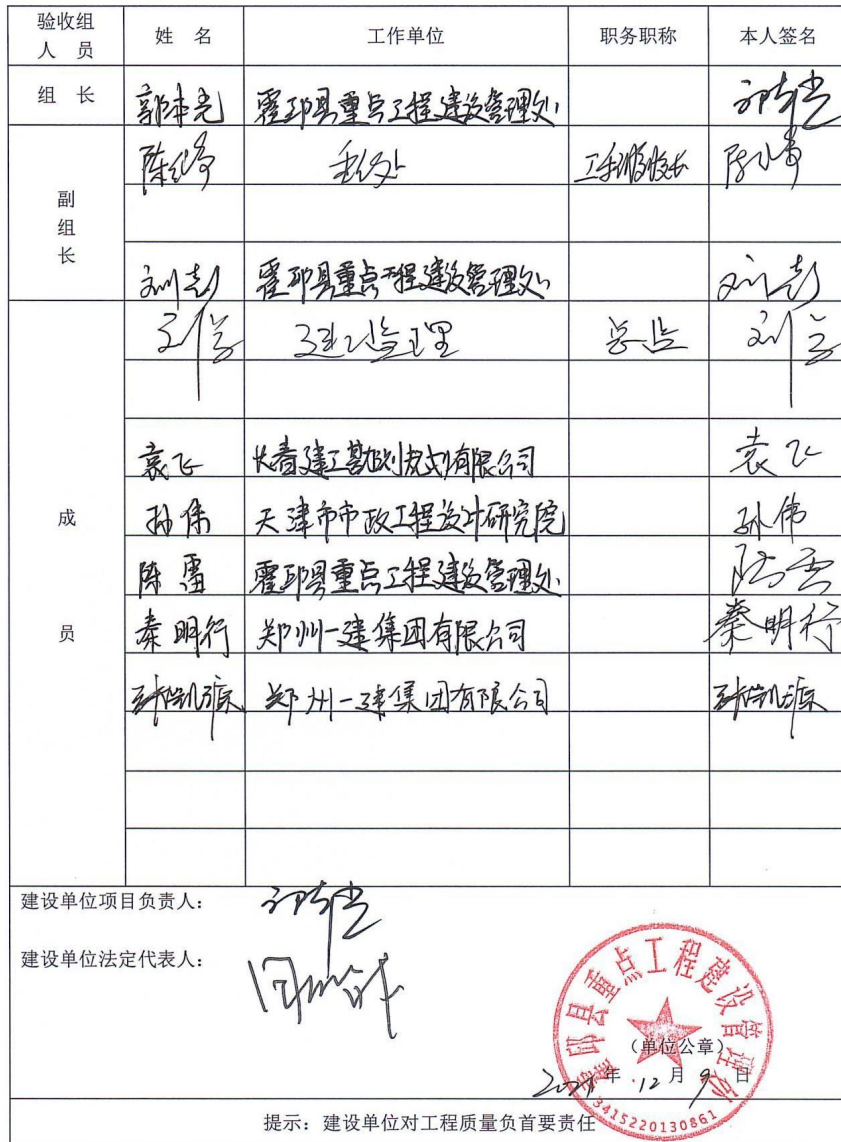 验收组人员 姓 名 工作单位 职务职称 本人签名
组 长 郭本光 霍邱县重点工程建设管理处
重点处
副组长
刘彭 霍邱县重点工程建设管理处 刘彭
监理 总监
成员
袁飞 有限公司 袁飞
孙伟 天津市市政工程设计研究院 孙伟
陈雷 霍邱县重点工程建设管理处 陈雷
秦明行 郑州一建集团有限公司 秦明行
郑州一建集团有限公司
建设单位项目负责人:
建设单位法定代表人:
霍邱县重点工程建设管理处
(单位公章)
2021年12月9日
3415220130861
提示:建设单位对工程质量负首要责任